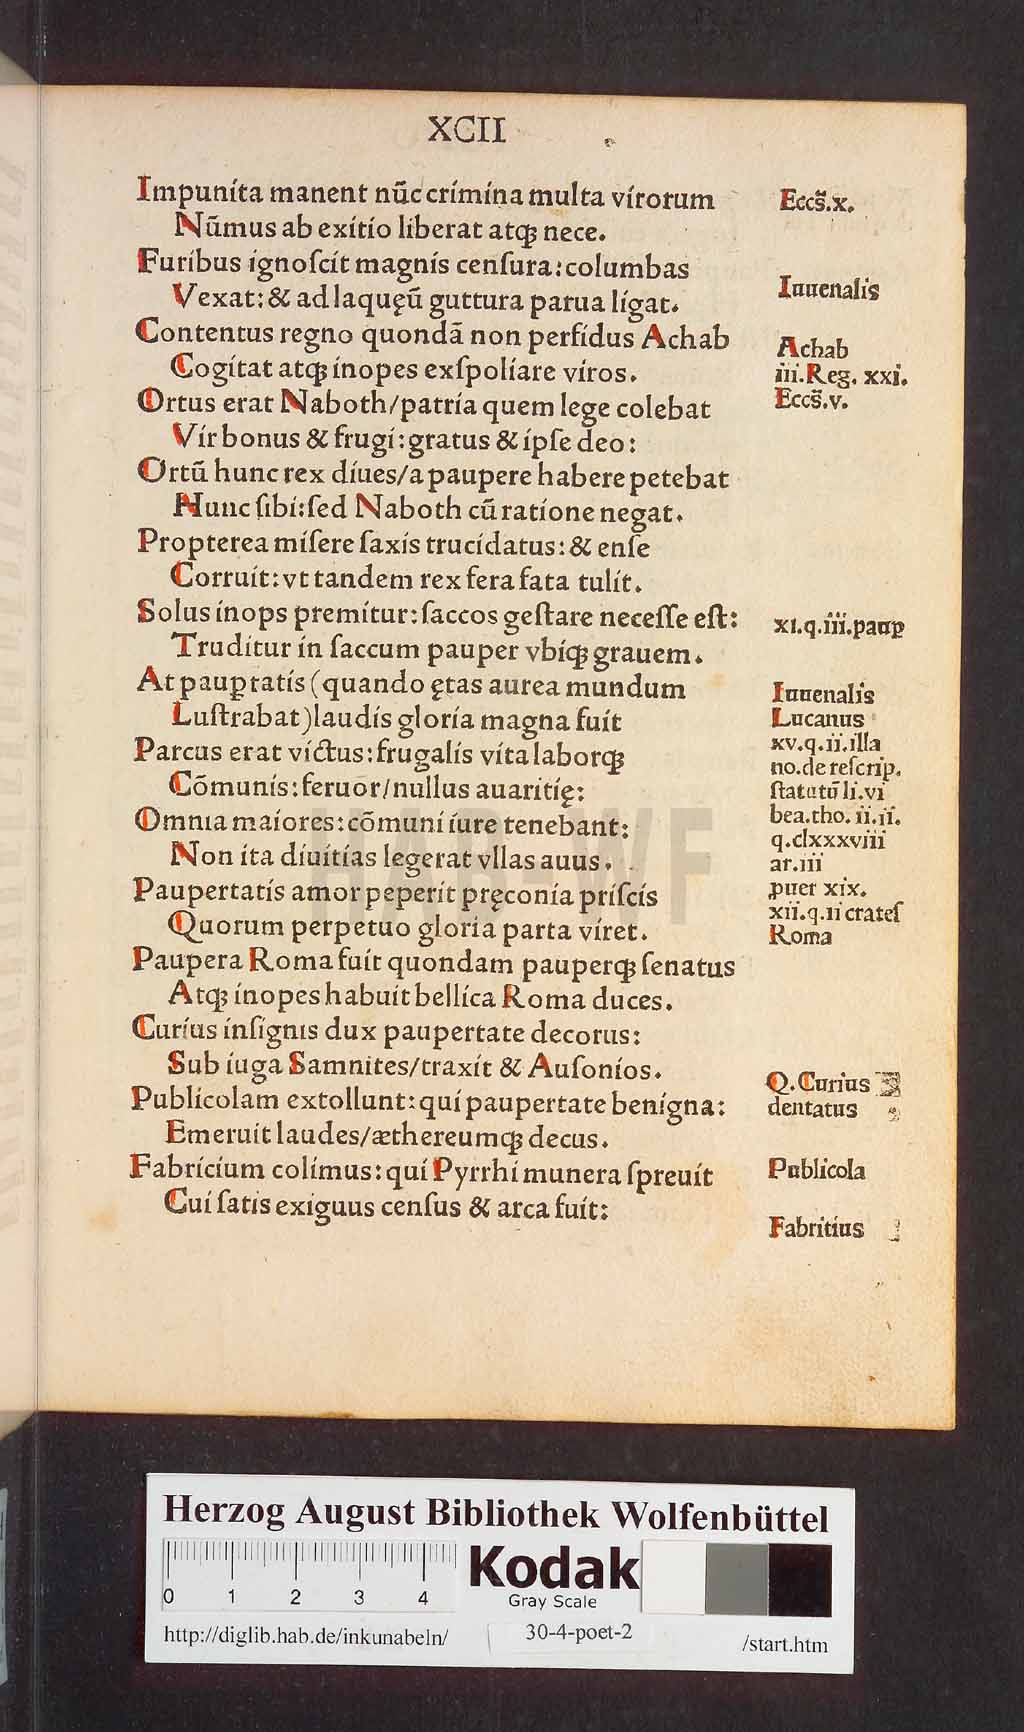 XCII
Impunita manent nūc crimina multa virorum
Nūmus ab exitio liberat atqꝫ nece.
Furibus ignoſcit magnis cenſura: columbas
Vexat: & ad laquęū guttura parua ligat.
Contentus regno quondā non perfidus Achab
Cogitat atqꝫ inopes exſpoliare viros.
Ortus erat Naboth/patria quem lege colebat
Vir bonus & frugi: gratus & ipſe deo:
Ortū hunc rex diues/a paupere habere petebat
Hunc ſibi: ſed Naboth cū ratione negat.
Propterea miſere ſaxis trucidatus: & enſe
Corruit: vt tandem rex fera fata tulit.
Solus inops premitur: ſaccos geſtare neceſſe eſt:
Truditur in ſaccum pauper vbiqꝫ grauem.
At paupꝑtatis (quando ętas aurea mundum
Luſtrabat) laudis gloria magna fuit
Parcus erat victus: frugalis vita laborqꝫ
Cōmunis: feruor/nullus auaritię:
Omnia maiores: cōmuni iure tenebant:
Non ita diuitias legerat vllas auus.
Paupertatis amor peperit pręconia priſcis
Quorum perpetuo gloria parta viret.
Paupera Roma fuit quondam pauperqꝫ ſenatus
Atqꝫ inopes habuit bellica Roma duces.
Curius inſignis dux paupertate decorus:
Sub iuga Samnites/traxit & Auſonios.
Publicolam extollunt: qui paupertate benigna:
Emeruit laudes/æthereumqꝫ decus.
Fabricium colimus: qui Pyrrhi munera ſpreuit
Cui ſatis exiguus cenſus & arca fuit:
Eccs̄.x.
Iuuenalis
Achab
iii.Reg. xxi.
Eccs̄.v.
xi.q.iii.pauꝑ
Iuuenalis
Lucanus
xv.q.ii.illa
no.de reſcrip.
ſtatutū li.vi
bea.tho. ii.ii.
q.clxxxviii
ar.iii
puer xix.
xii.q.ii crateſ
Roma
Q.Curius
dentatus
Publicola
Fabritius
HAB WF
Herzog August Bibliothek Wolfenbüttel
0 1 2 3 4
Kodak
Gray Scale
http://diglib.hab.de/inkunabeln/ 30-4-poet-2 /start.htm